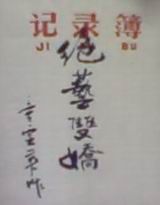 记录簿
JI BU
绝艺双娇